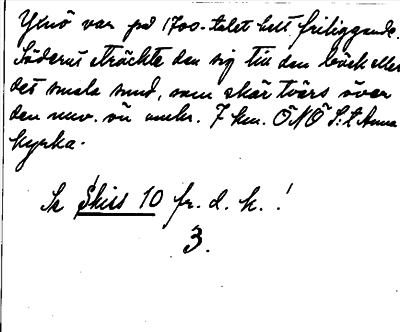 Ytnö var på 1700-talet helt friliggande.
Söderut sträckte den sig till den bäck eller
det smala sund, som skär tvärs över
den nuv. ön omkr. 7 km. ÖNÖ S:t Anna
kyrka.
Se Skiss 10 fr. d. k. !
3.